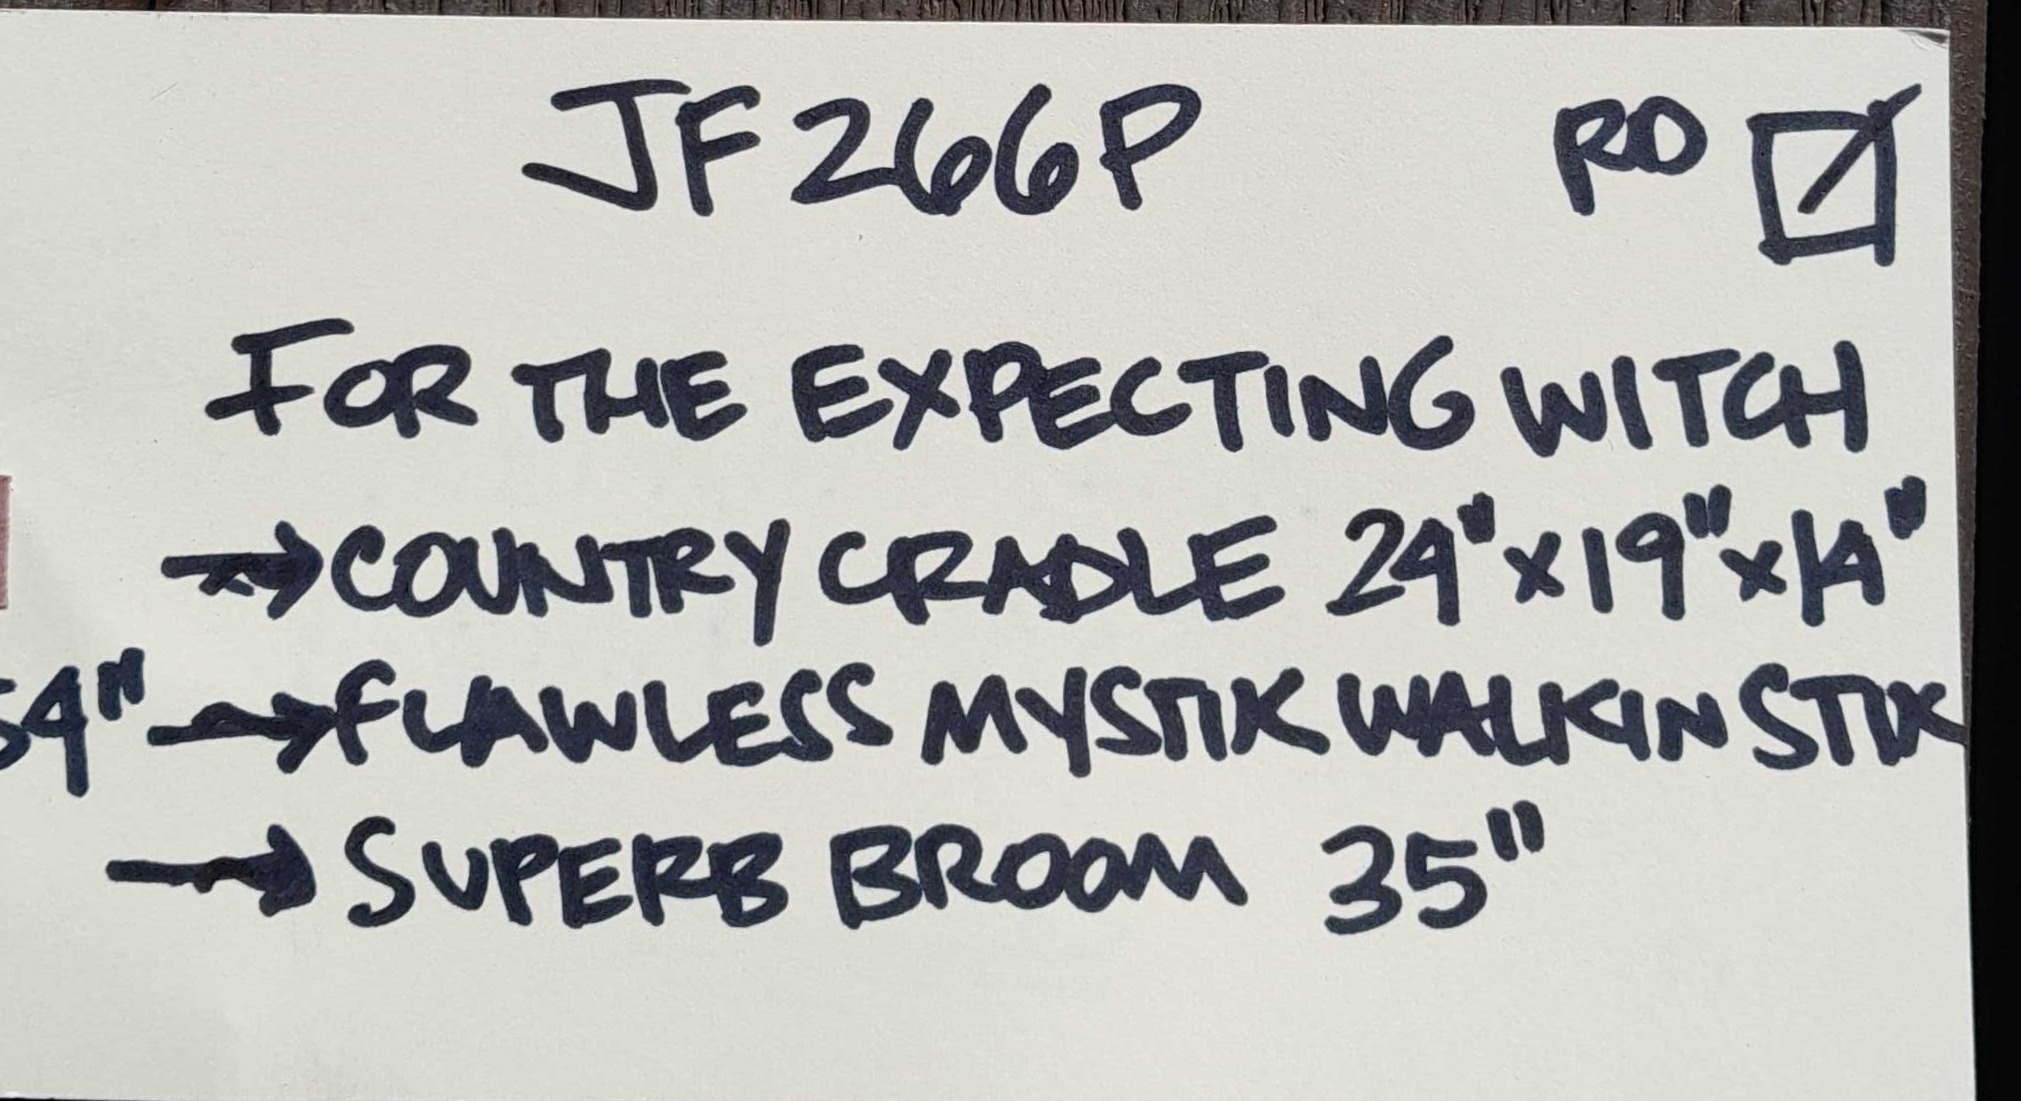 JF266P RD
FOR THE EXPECTING WITCH
→COUNTRY CRADLE 24"x19"x14"
54" →FLAWLESS MYSTIK WALKIN STIK
→SUPERB BROOM 35"